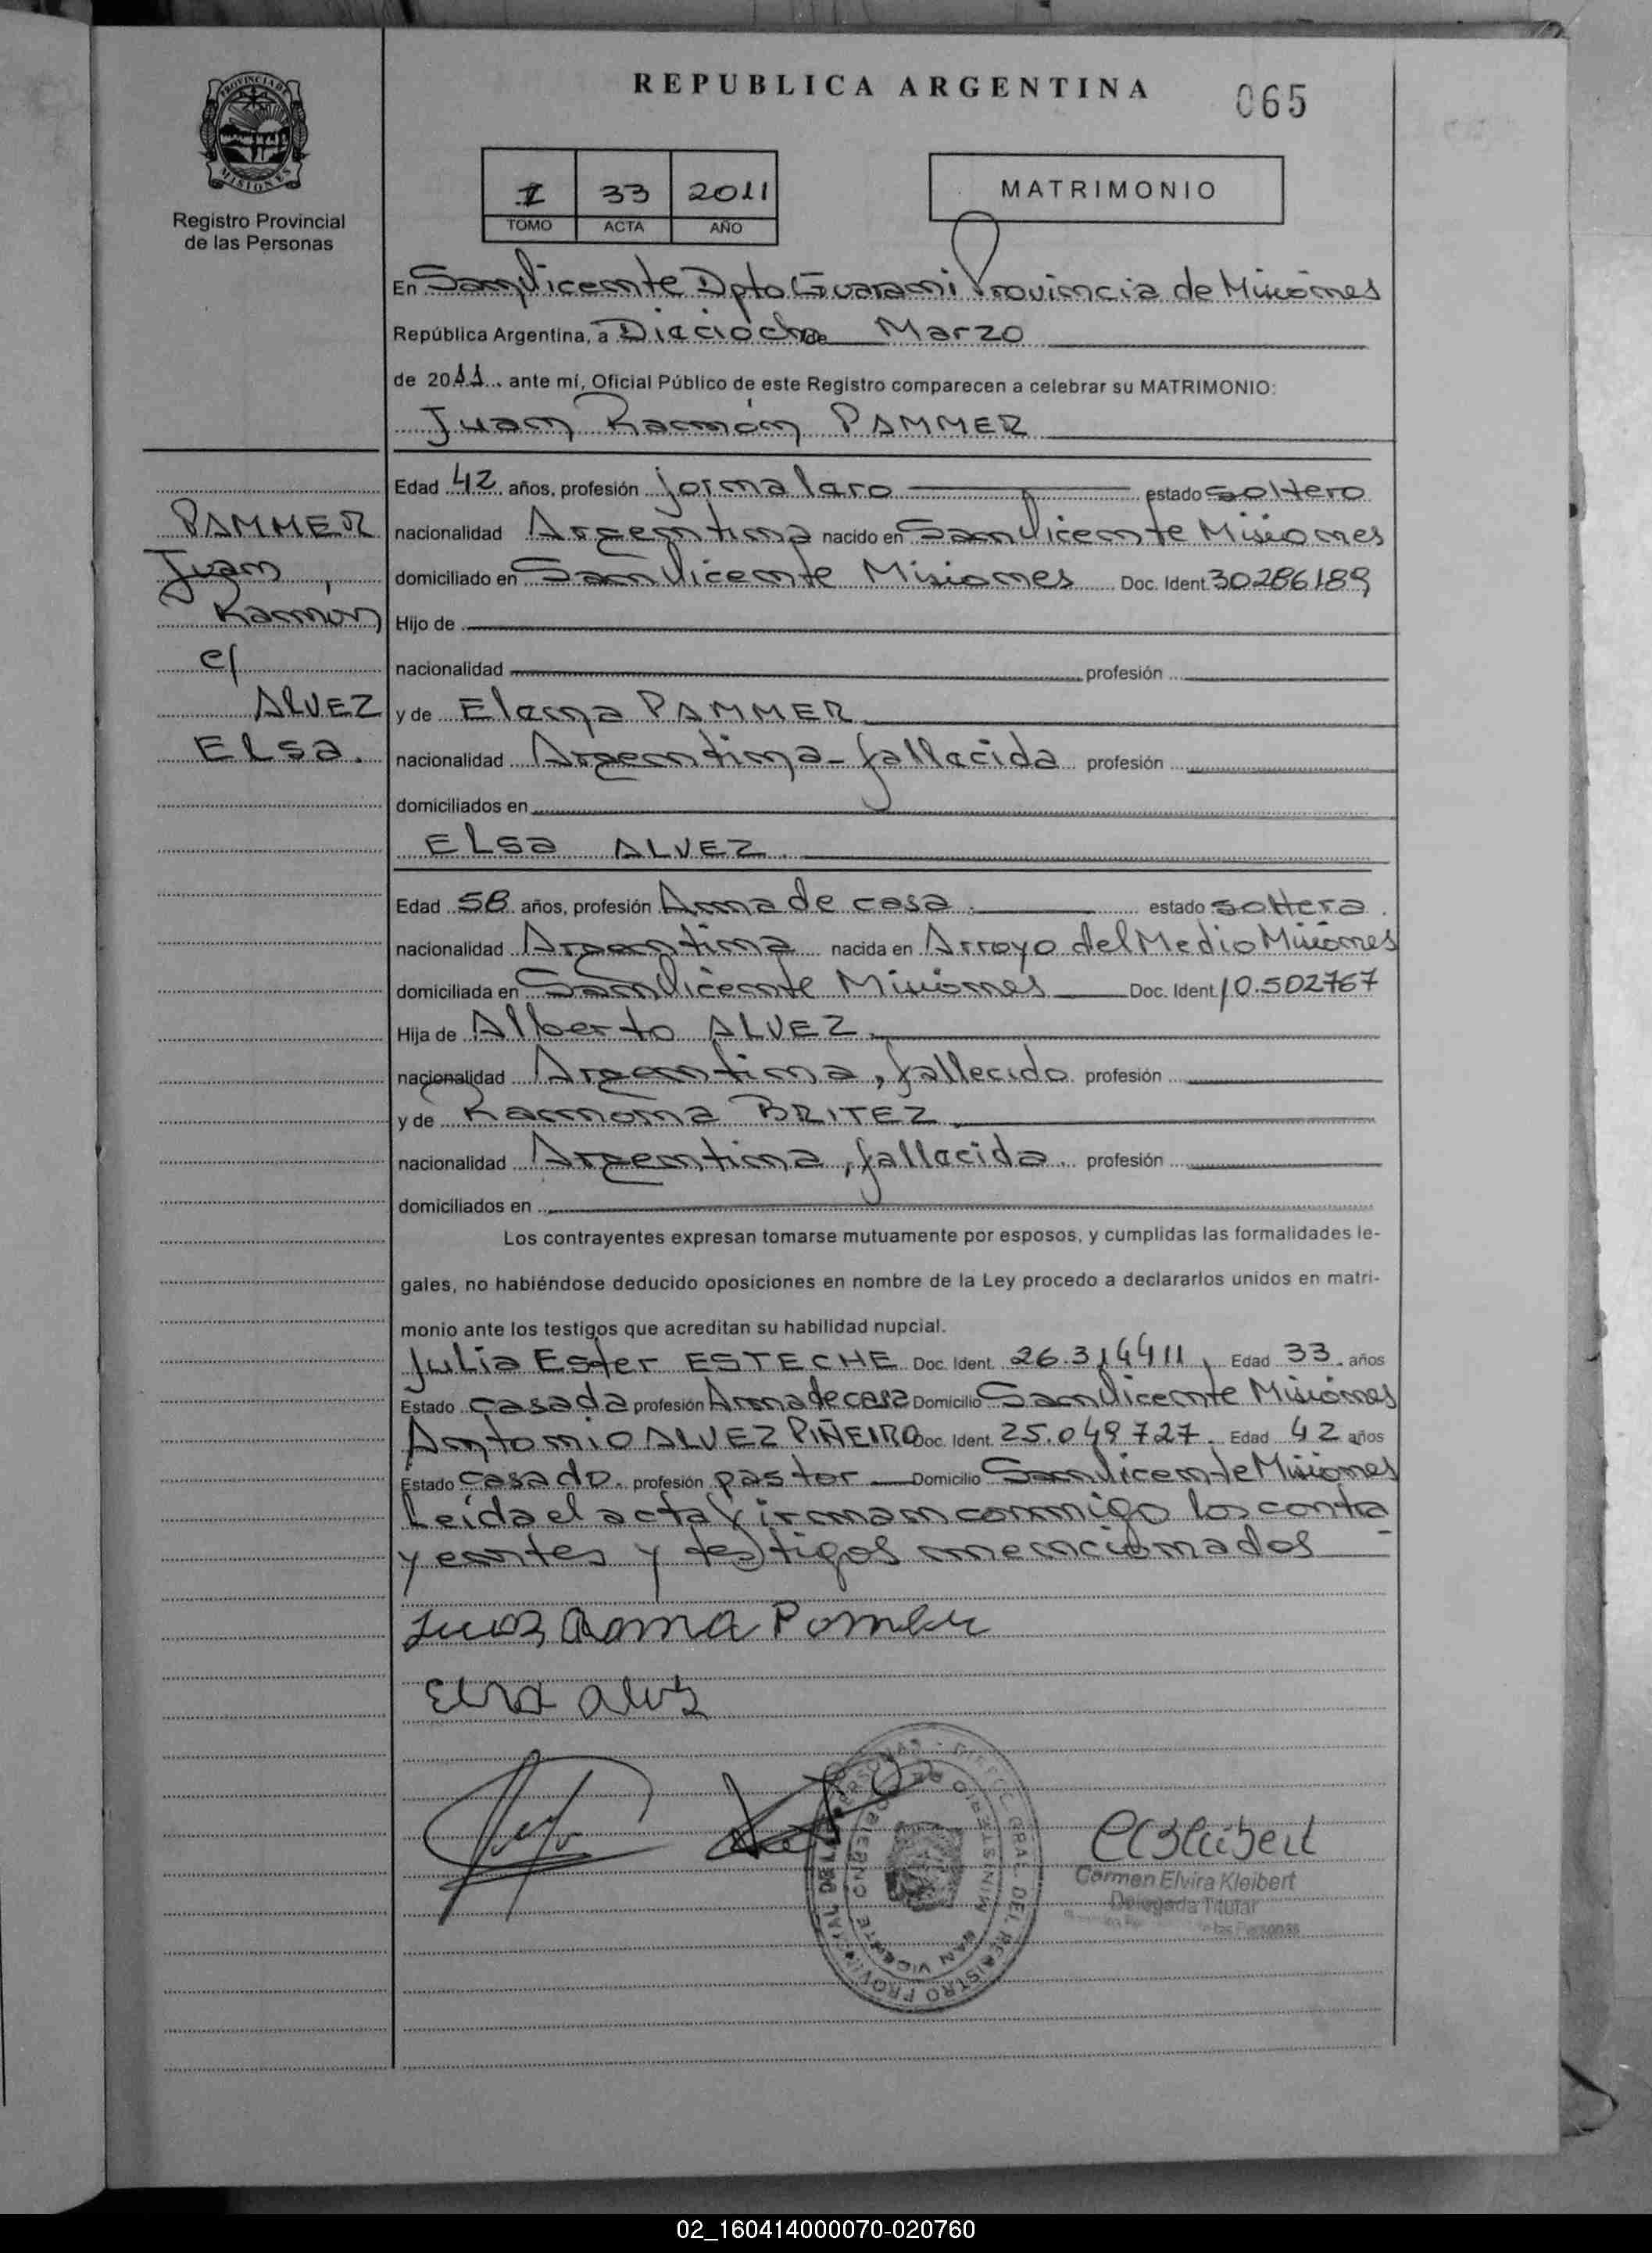 REPUBLICA ARGENTINA
065
PROVINCIA DE
MISIONES
Registro Provincial
de las Personas
I 33 2011
TOMO ACTA AÑO
MATRIMONIO
En San Vicente Dpto Guarani Provincia de Misiones
República Argentina, a Dieciocho de Marzo
de 2011 ante mí, Oficial Público de este Registro comparecen a celebrar su MATRIMONIO:
Juan Ramón PAMMER
PAMMER
Juan
Ramón
c/
ALVEZ
ELsa.
Edad 42 años, profesión Jornalero estado soltero
nacionalidad Argentina nacido en San Vicente Misiones
domiciliado en San Vicente Misiones Doc. Ident. 30286189
Hijo de
nacionalidad profesión
y de Elena PAMMER
nacionalidad Argentina - fallecida profesión
domiciliados en
ELsa ALVEZ
Edad 58 años, profesión Ama de casa. estado soltera.
nacionalidad Argentina nacida en Arroyo del Medio Misiones
domiciliada en San Vicente Misiones Doc. Ident. 10.502767
Hija de Alberto ALVEZ.
nacionalidad Argentina, fallecido profesión
y de Ramona BRITEZ.
nacionalidad Argentina, fallecida. profesión
domiciliados en
Los contrayentes expresan tomarse mutuamente por esposos, y cumplidas las formalidades le-
gales, no habiéndose deducido oposiciones en nombre de la Ley procedo a declararlos unidos en matri-
monio ante los testigos que acreditan su habilidad nupcial.
Julia Ester ESTECHE Doc. Ident. 26.314411, Edad 33. años
Estado Casada profesión Ama de casa Domicilio San Vicente Misiones
Antonio ALVEZ PIÑEIRO Doc. Ident. 25.049727. Edad 42 años
Estado Casado. profesión pastor Domicilio San Vicente Misiones
Leida el acta firman conmigo los contra
yentes y testigos mencionados
Elsa alvez
Carmen Elvira Kleibert
Delegada Titular
de las Personas
GRAL. DEL REGISTRO PROVINCIAL DE LAS PERSONAS
MINISTERIO DE GOBIERNO
SAN VICENTE
02_160414000070-020760